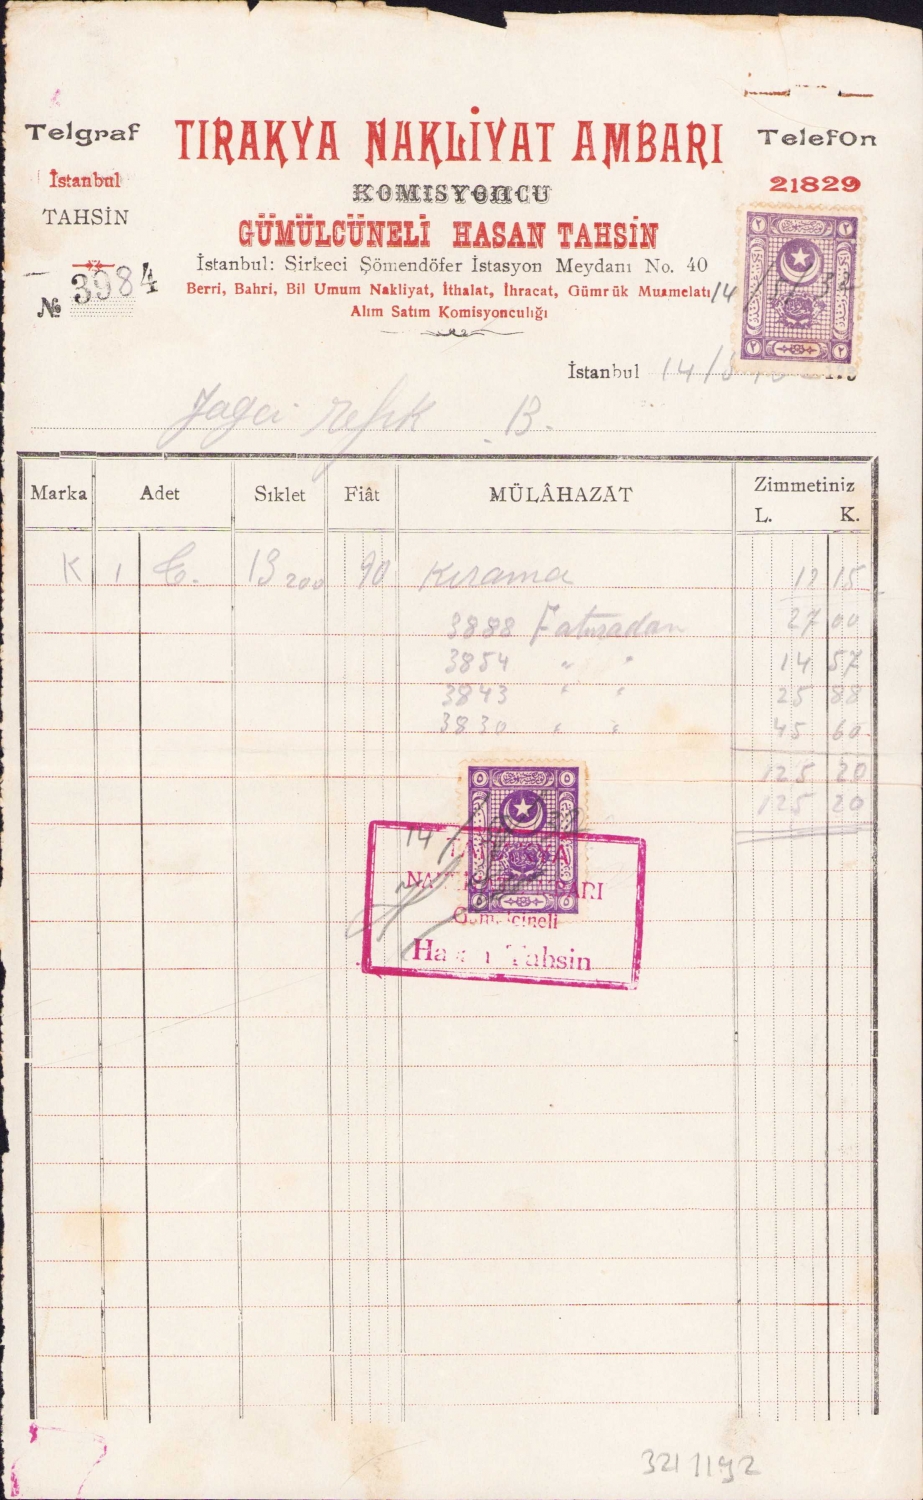 Telgraf
İstanbul
TAHSİN
№ 3984
TIRAKYA NAKLİYAT AMBARI
KOMISYONCU
GÜMÜLCÜNELİ HASAN TAHSİN
İstanbul: Sirkeci Şömendöfer İstasyon Meydanı No. 40
Berri, Bahri, Bil Umum Nakliyat, İthalat, İhracat, Gümrük Muamelatı
Alım Satım Komisyonculuğı
TelefOn
21829
٢ ٢
14/5/32
٢ ٢
İstanbul 14/5
Yagci refik B.
Marka Adet Sıklet Fiât MÜLÂHAZAT Zimmetiniz
L. K.
K 1 13 200 90 15
3888 Faturadan 27 00
3854 " " 14 57
3843 " " 25 88
3830 " " 45 60
125 20
125 20
٥ ٥
14/5/32
٥ ٥
Hasan Tahsin
3211192